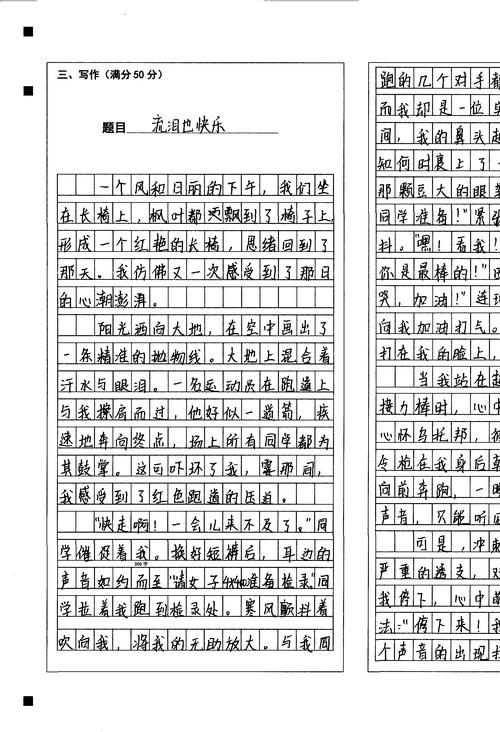 三、写作（满分50分）
题目 流泪也快乐
一个风和日丽的下午，我们坐
在长椅上，枫叶都飘到了椅子上，
形成一个红艳的长椅，思绪回到了
那天。我仿佛又一次感受到了那日
的心潮彭湃。
阳光洒向大地，在空中画出了
一条精准的抛物线。大地上混合着
汗水与眼泪。一名运动员在跑道上
与我擦肩而过，他好似一道箭，疾
速地奔向终点，场上的所有同学都为
其鼓掌。这可吓坏了我，霎那间，
我感受到了红色跑道的压迫。
“快走啊！一会儿来不及了。”同
学催促着我。换好短裤后，耳边的
200字
声音如约而至“请女子4×400准备检录。”同
学拉着我跑到检录处。寒风颤抖着
吹向我，将我的无助放大。与我同
跑的几个对手都
而我却是一位
间，我的鼻头
知何时裹上了一
那颗豆大的眼
同学准备！”紧张
抖。“嘿！看我！
你是最棒的！”
哭，加油！”连
向我加油打气。
打在我的脸上，
当我站在
接力棒时，心中
心怀乌托邦，
令枪在我身后
向前奔跑，一
声音，只能听
可是，冲刺
严重的透支，对
我停下，心中
法：“停下来！我
个声音的出现